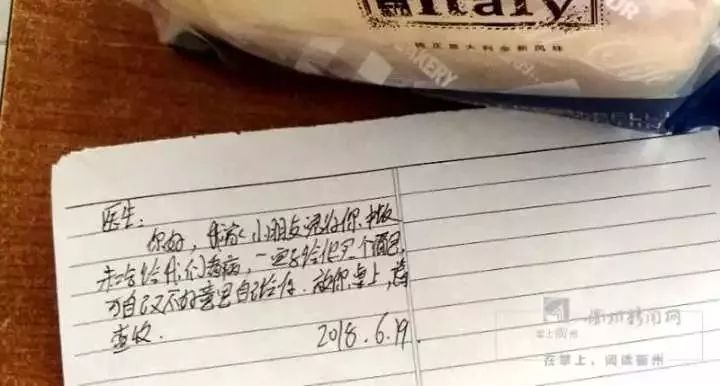 Italy
意大利全新风味
BAKERY
医生：
你好，我家小朋友说你饭
未吃给我们看病，一定要给你买个面包，
可自己又不好意思自己给你。放你桌上，请
查收.
2018.6.19.
掌上衢州
衢州新闻网
在掌上，阅读衢州